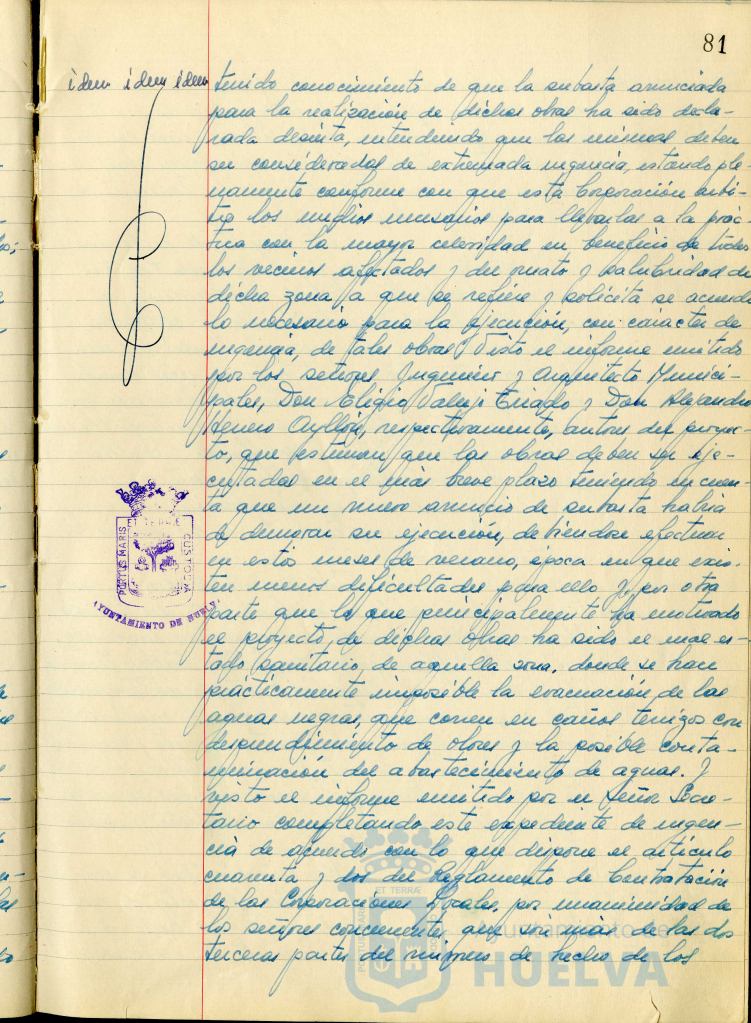 81
idem idem idem
tenido conocimiento de que la subasta anunciada
para la realización de dichas obras ha sido decla-
rada desierta, entendiendo que las mismas deben
ser consideradas de extremada urgencia, estando ple-
namente conforme con que esta Corporación arbi-
tre los medios necesarios para llevarlas a la prác-
tica con la mayor celeridad en beneficio de todos
los vecinos afectados y del ornato y salubridad de
dicha zona a que se refiere y solicita se acuerde
lo necesario para la ejecución, con caracter de
urgencia, de tales obras. Visto el informe emitido
por los señores Ingeniero y Arquitecto Munici-
pales, Don Eligio Vallejo Tirado y Don Alejandro
Herrero Ayllón, respectivamente, autores del proyec-
to, que estiman que las obras deben ser eje-
cutadas en el más breve plazo teniendo en cuen-
ta que un nuevo anuncio de subasta habria
de demorar su ejecución, debiendose efectuar
en estos meses de verano, época en que exis-
ten menos dificultades para ello y, por otra
parte que lo que principalmente ha motivado
el proyecto, de dichas obras ha sido el mal es-
tado sanitario, de aquella zona, donde se han
prácticamente imposible la evacuación, de las
aguas negras, que corren en caños con
desprendimiento de olores y la posible conta-
minación del abastecimiento de aguas. Y
visto el informe emitido por el Señor Secre-
tario completando este expediente de urgen-
cia de acuerdo con lo que dispone el artículo
cuarenta y dos del Reglamento de Contratación
de las Corporaciones Locales, por unanimidad de
los señores concurrentes que son más de las dos
terceras partes del número de hecho de los
PORTUS MARIS
ET TERRE
CUSTODIA
AYUNTAMIENTO DE HUELVA
ET TERRÆ
PORTUS MARIS
Ayuntamiento de
HUELVA